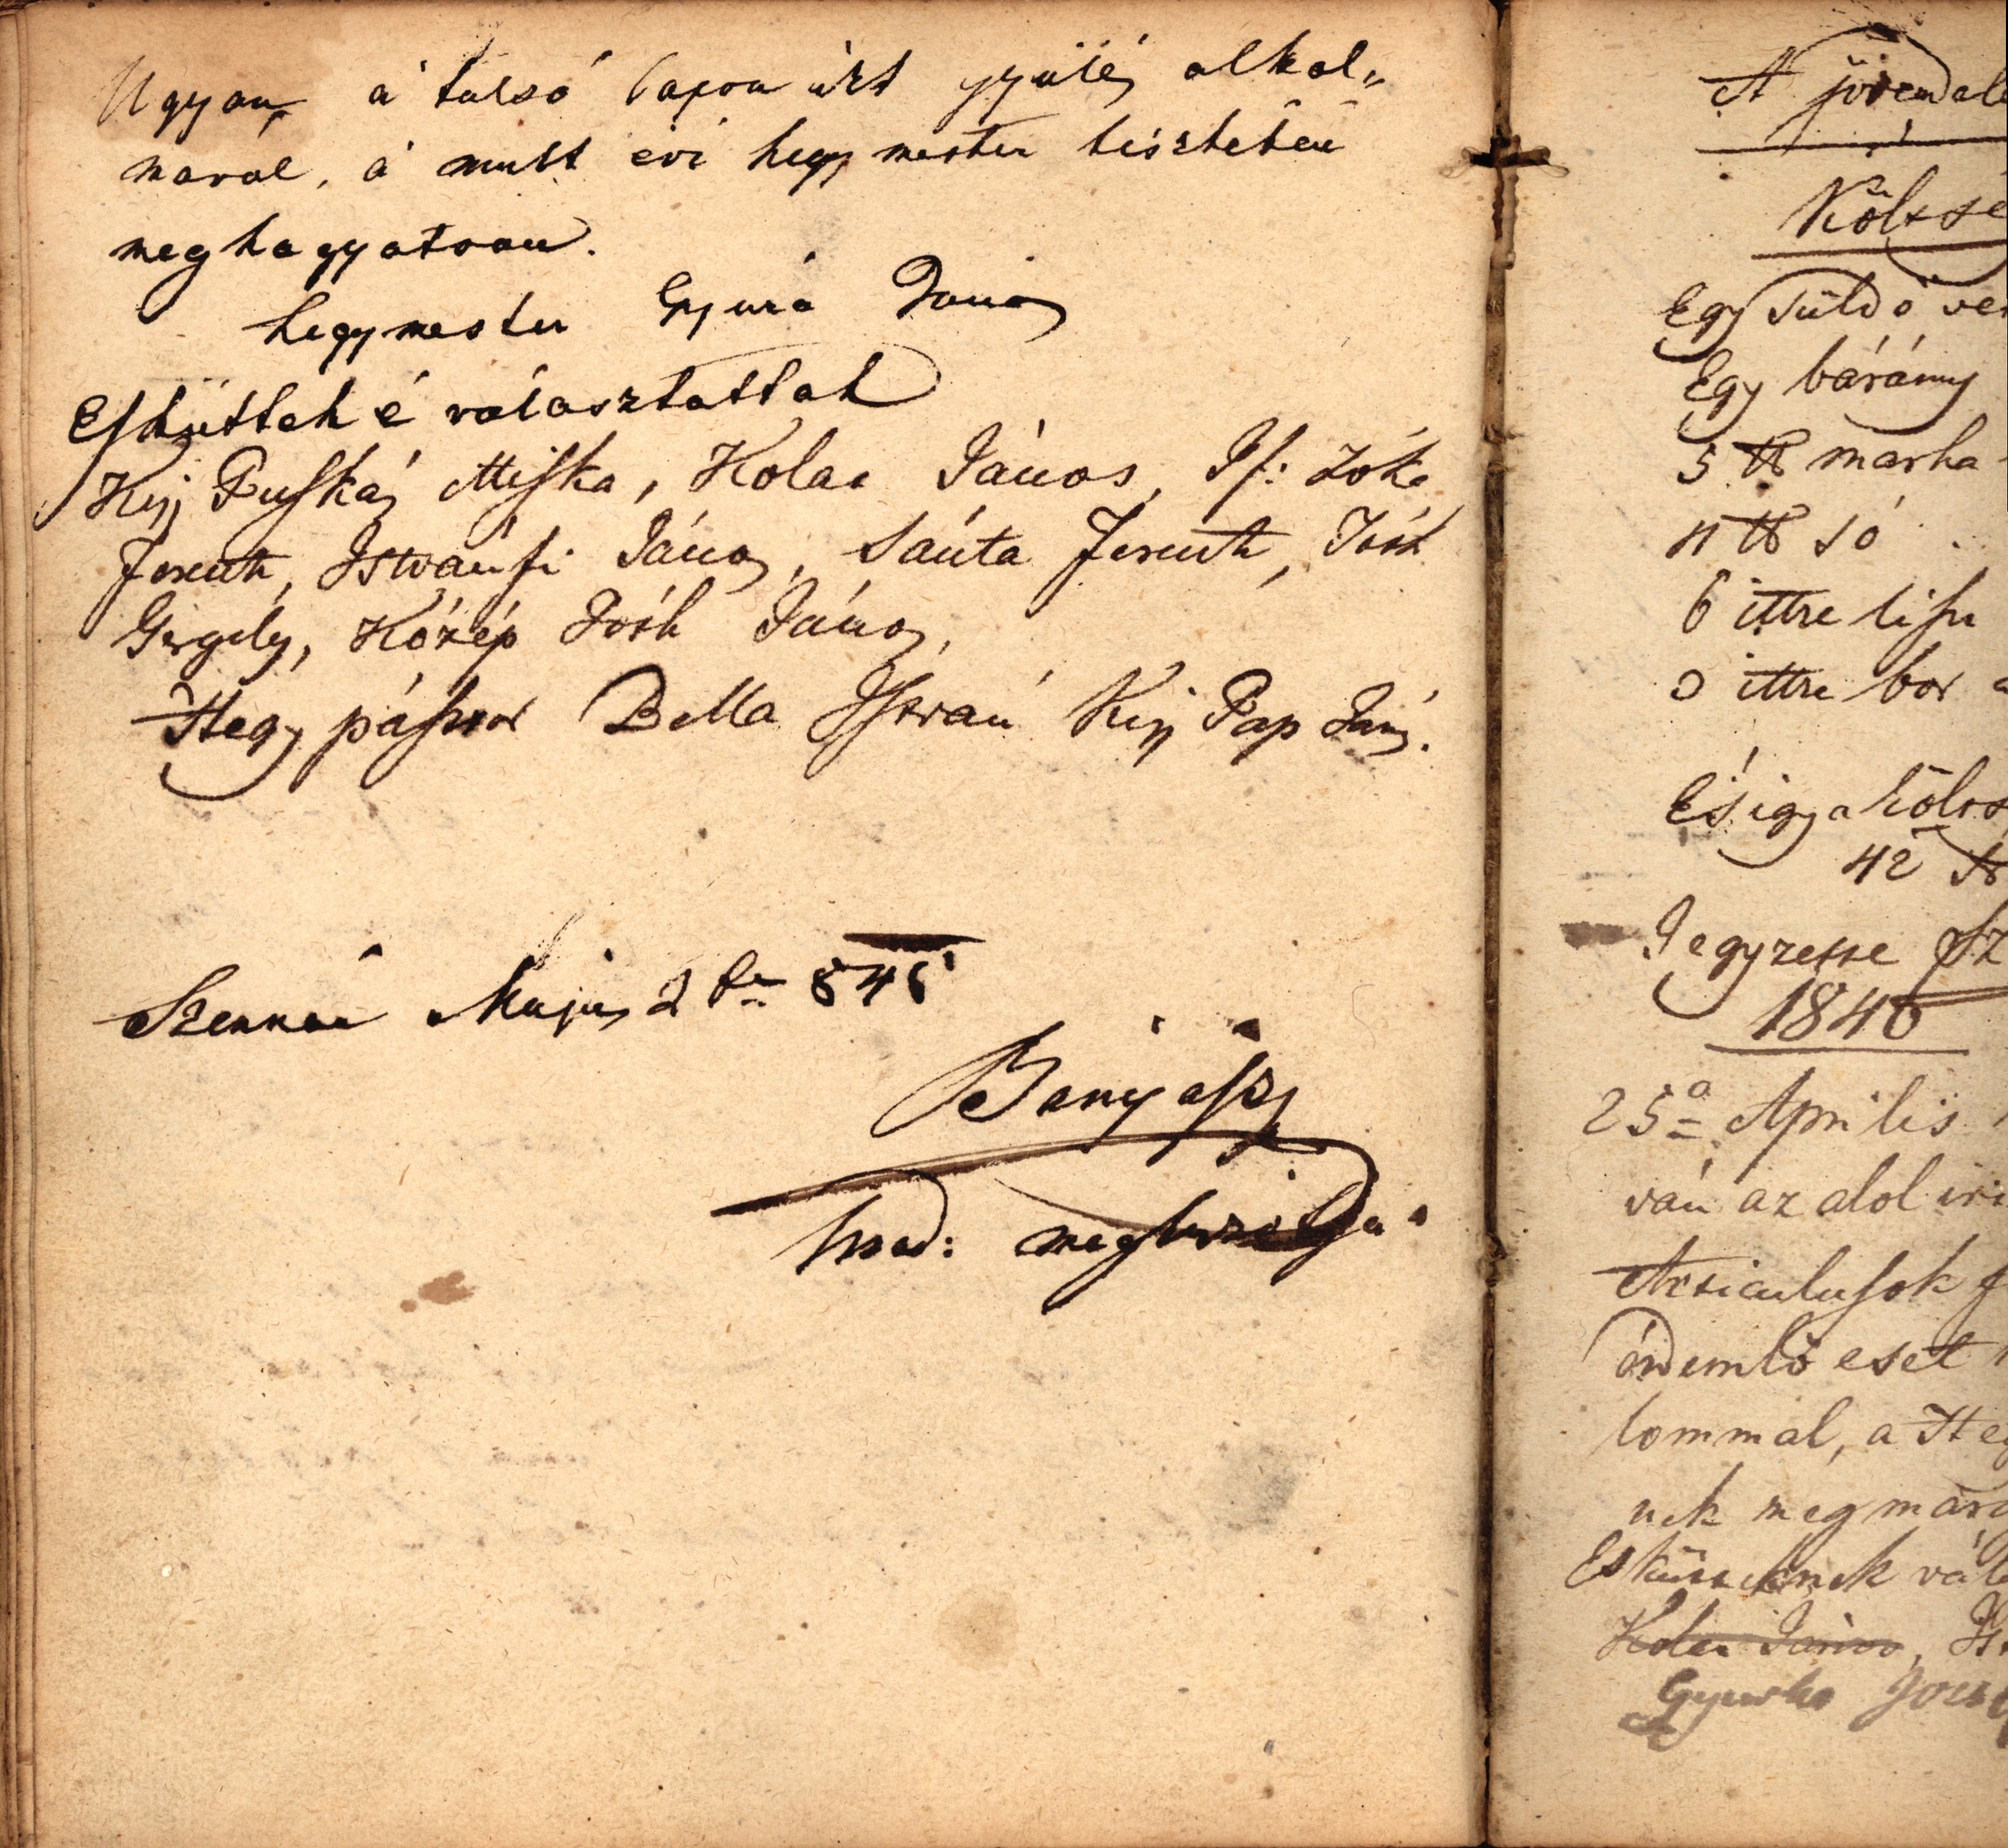 Ugyan a' tulsó lapon irt gyülés alkal„
mával, a' mult évi hegymester tisztében
meghagyatván.
hegymester Gyura János
Esküttek é választattak
Kis Puskás Miska, Kolar János, If: Zóka
Ferentz, Istvánfi János, Sánta Ferentz, Tóth
Gergely, Közép Tóth János,
Hegy pásztor Bella István Kis Pap Ján.
Szennán Május 2án 846
Bányász
hwad: megbizottja
A jövendöle
Kölcsé
Egy süldö
Egy bárány
5 ℔ marha
11 ℔ só
6 ittze lisz
ittze bor
És igy a költs
42
Jegyzette Sz
1846
25a Aprilis
ván az alol iri
Articulusok
érdemlö eset
lommal, a He
nek megmara
Eskütteknek vála
Kolar János,
Gyurka